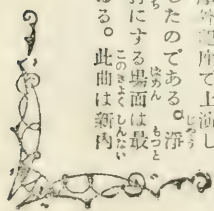 座で上演し
したのである。淨
にする場面は最
る。此曲は新内